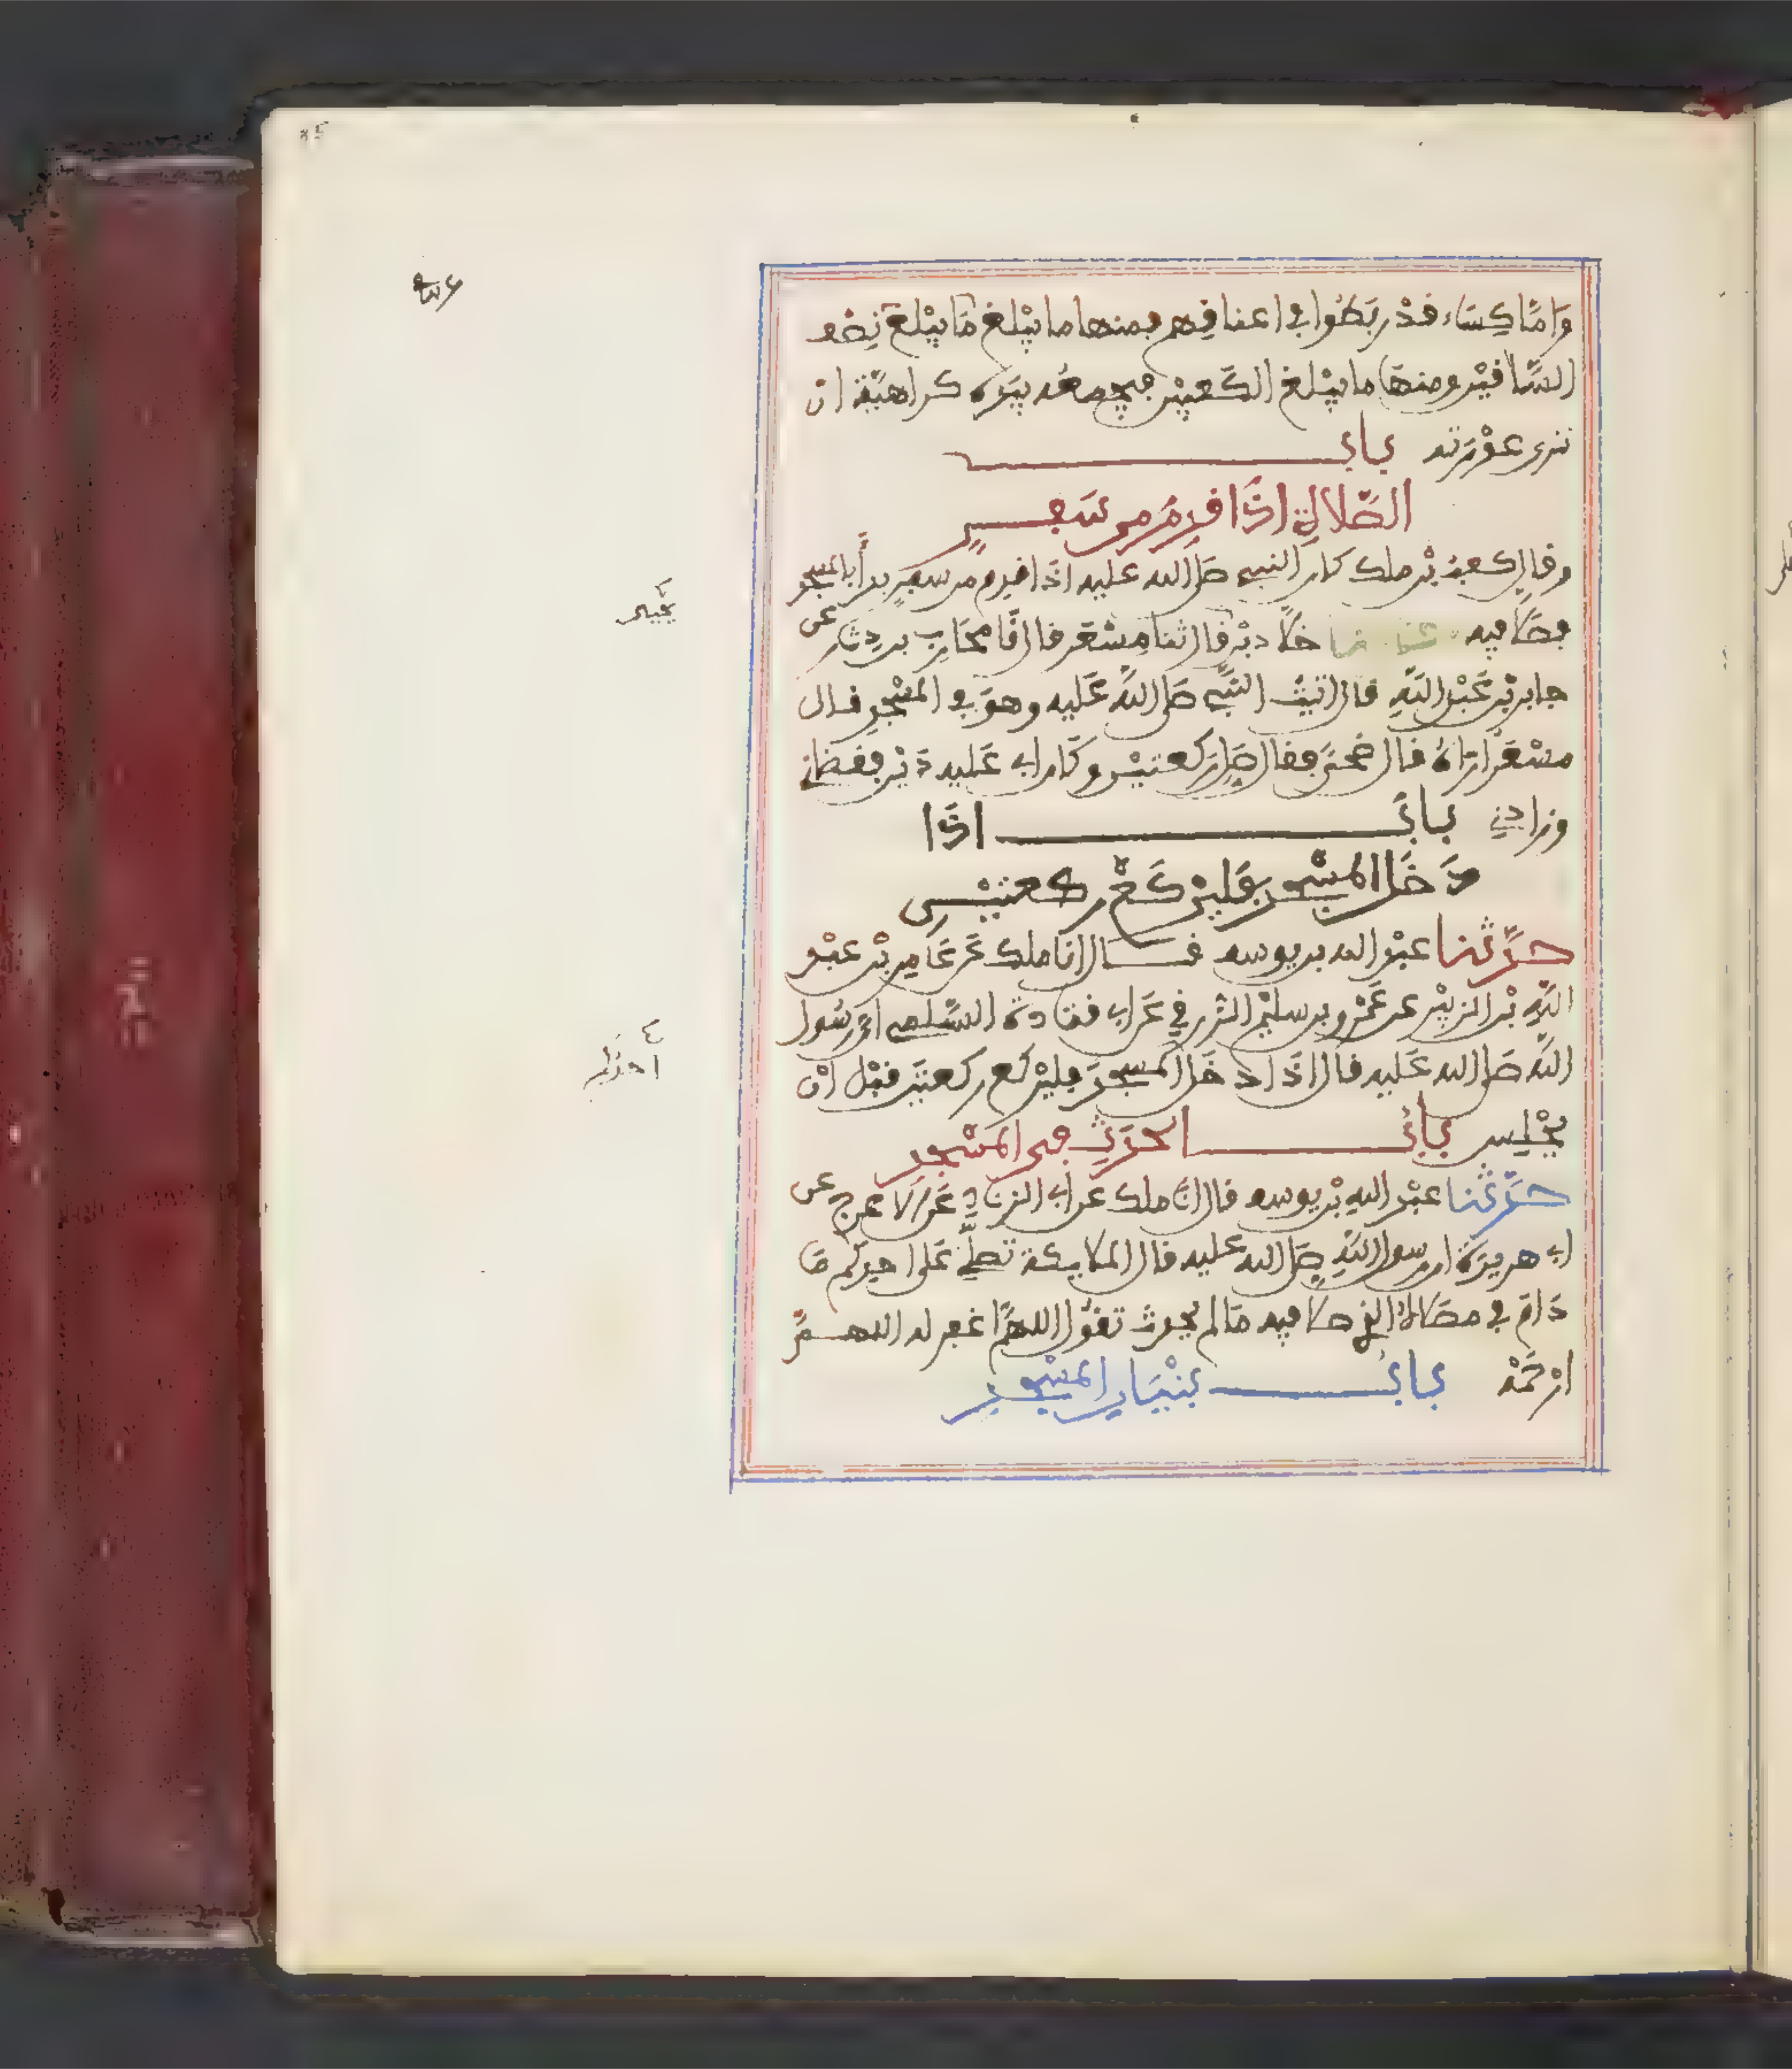 وَامَّا كِسَاء فَدْ رَبَطُوا في اعنافِهم فمنها ما يَبْلغ مَا يَبْلغ نِصْف
السَّافَيْن ومنهَا ما يَبْلغ الكَعبَيْن فيجمعُه بيَدِه كراهيَّة ان
تـرى عَوْرَته بابُ
الصَّلاةِ اذَا فدِمَ من سَفـرٍ
وفال كعبُ بْن ملك كان النبي صَلى الله عليه اذَا فدِم من سفَرٍ بدَأَ بالمسجد
فصَلى فيه حدثنا خلَّادُ بْن يحيى فال ثنا مِسْعَر فال نَا محَارِب بن دِثَار عن
جابر بْن عَبْد اللَّه فال اتيتُ النَّبِي صَلى اللَّه عَليه وهوَ في المسْجِدِ فال
مسْعَر ارَاهُ فال ضُحًى ففال صَلِّ ركعتيْن وكَان لي عَليه دَيْن ففضَاني
وزادني بابُ اذَا
دَخَل المسْجد فليَرْكَعْ ركعتيْن
حدَّثنا عبْد الله بن يوسف فـــال انا ملك عَن عَامِر بْن عبْد
اللَّهِ بْن الزبيْر عن عَمْرو بن سليْم الزُّرَفي عَن ابي فتَادَة السَّلمي ان رسُول
اللَّه صَلى الله عَليه فال اذَا دخَل المسجدَ فليَرْكع ركعتَيْن فبْل انْ
يجْلِس بابُ الحَدَثِ في المسْجد
حدَّثنا عبْد اللهِ بْن يوسف فال انَا ملك عن ابي الزنَادِ عَن الاعرج عن
ابي هريرَة ان رسول اللَّهِ صَلى الله عليه فال الملايكة تصلّي عَلى احدِكم مَا
دَامَ في مصَلاهُ الذي صلى فيه مَا لم يحدث تفُول اللهمَّ اغفر له اللهـمَّ
ارْحَمْه بابُ بنْيَان المسْجِدِ
يَحْيَى